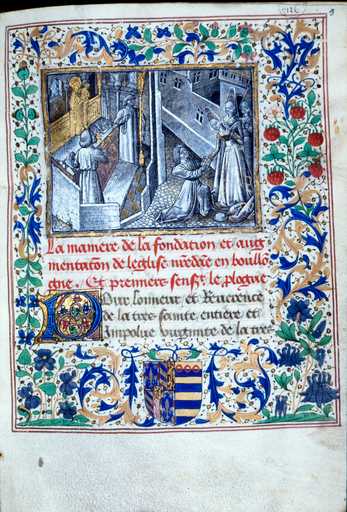 La maniere de la fondation et aug
mentation de leglise nredame en boullo
gne. Et premierement sensuit le prologue
Pour lonneur et Reverence
de la tres sainte entiere et
Impolue virginite de la tres